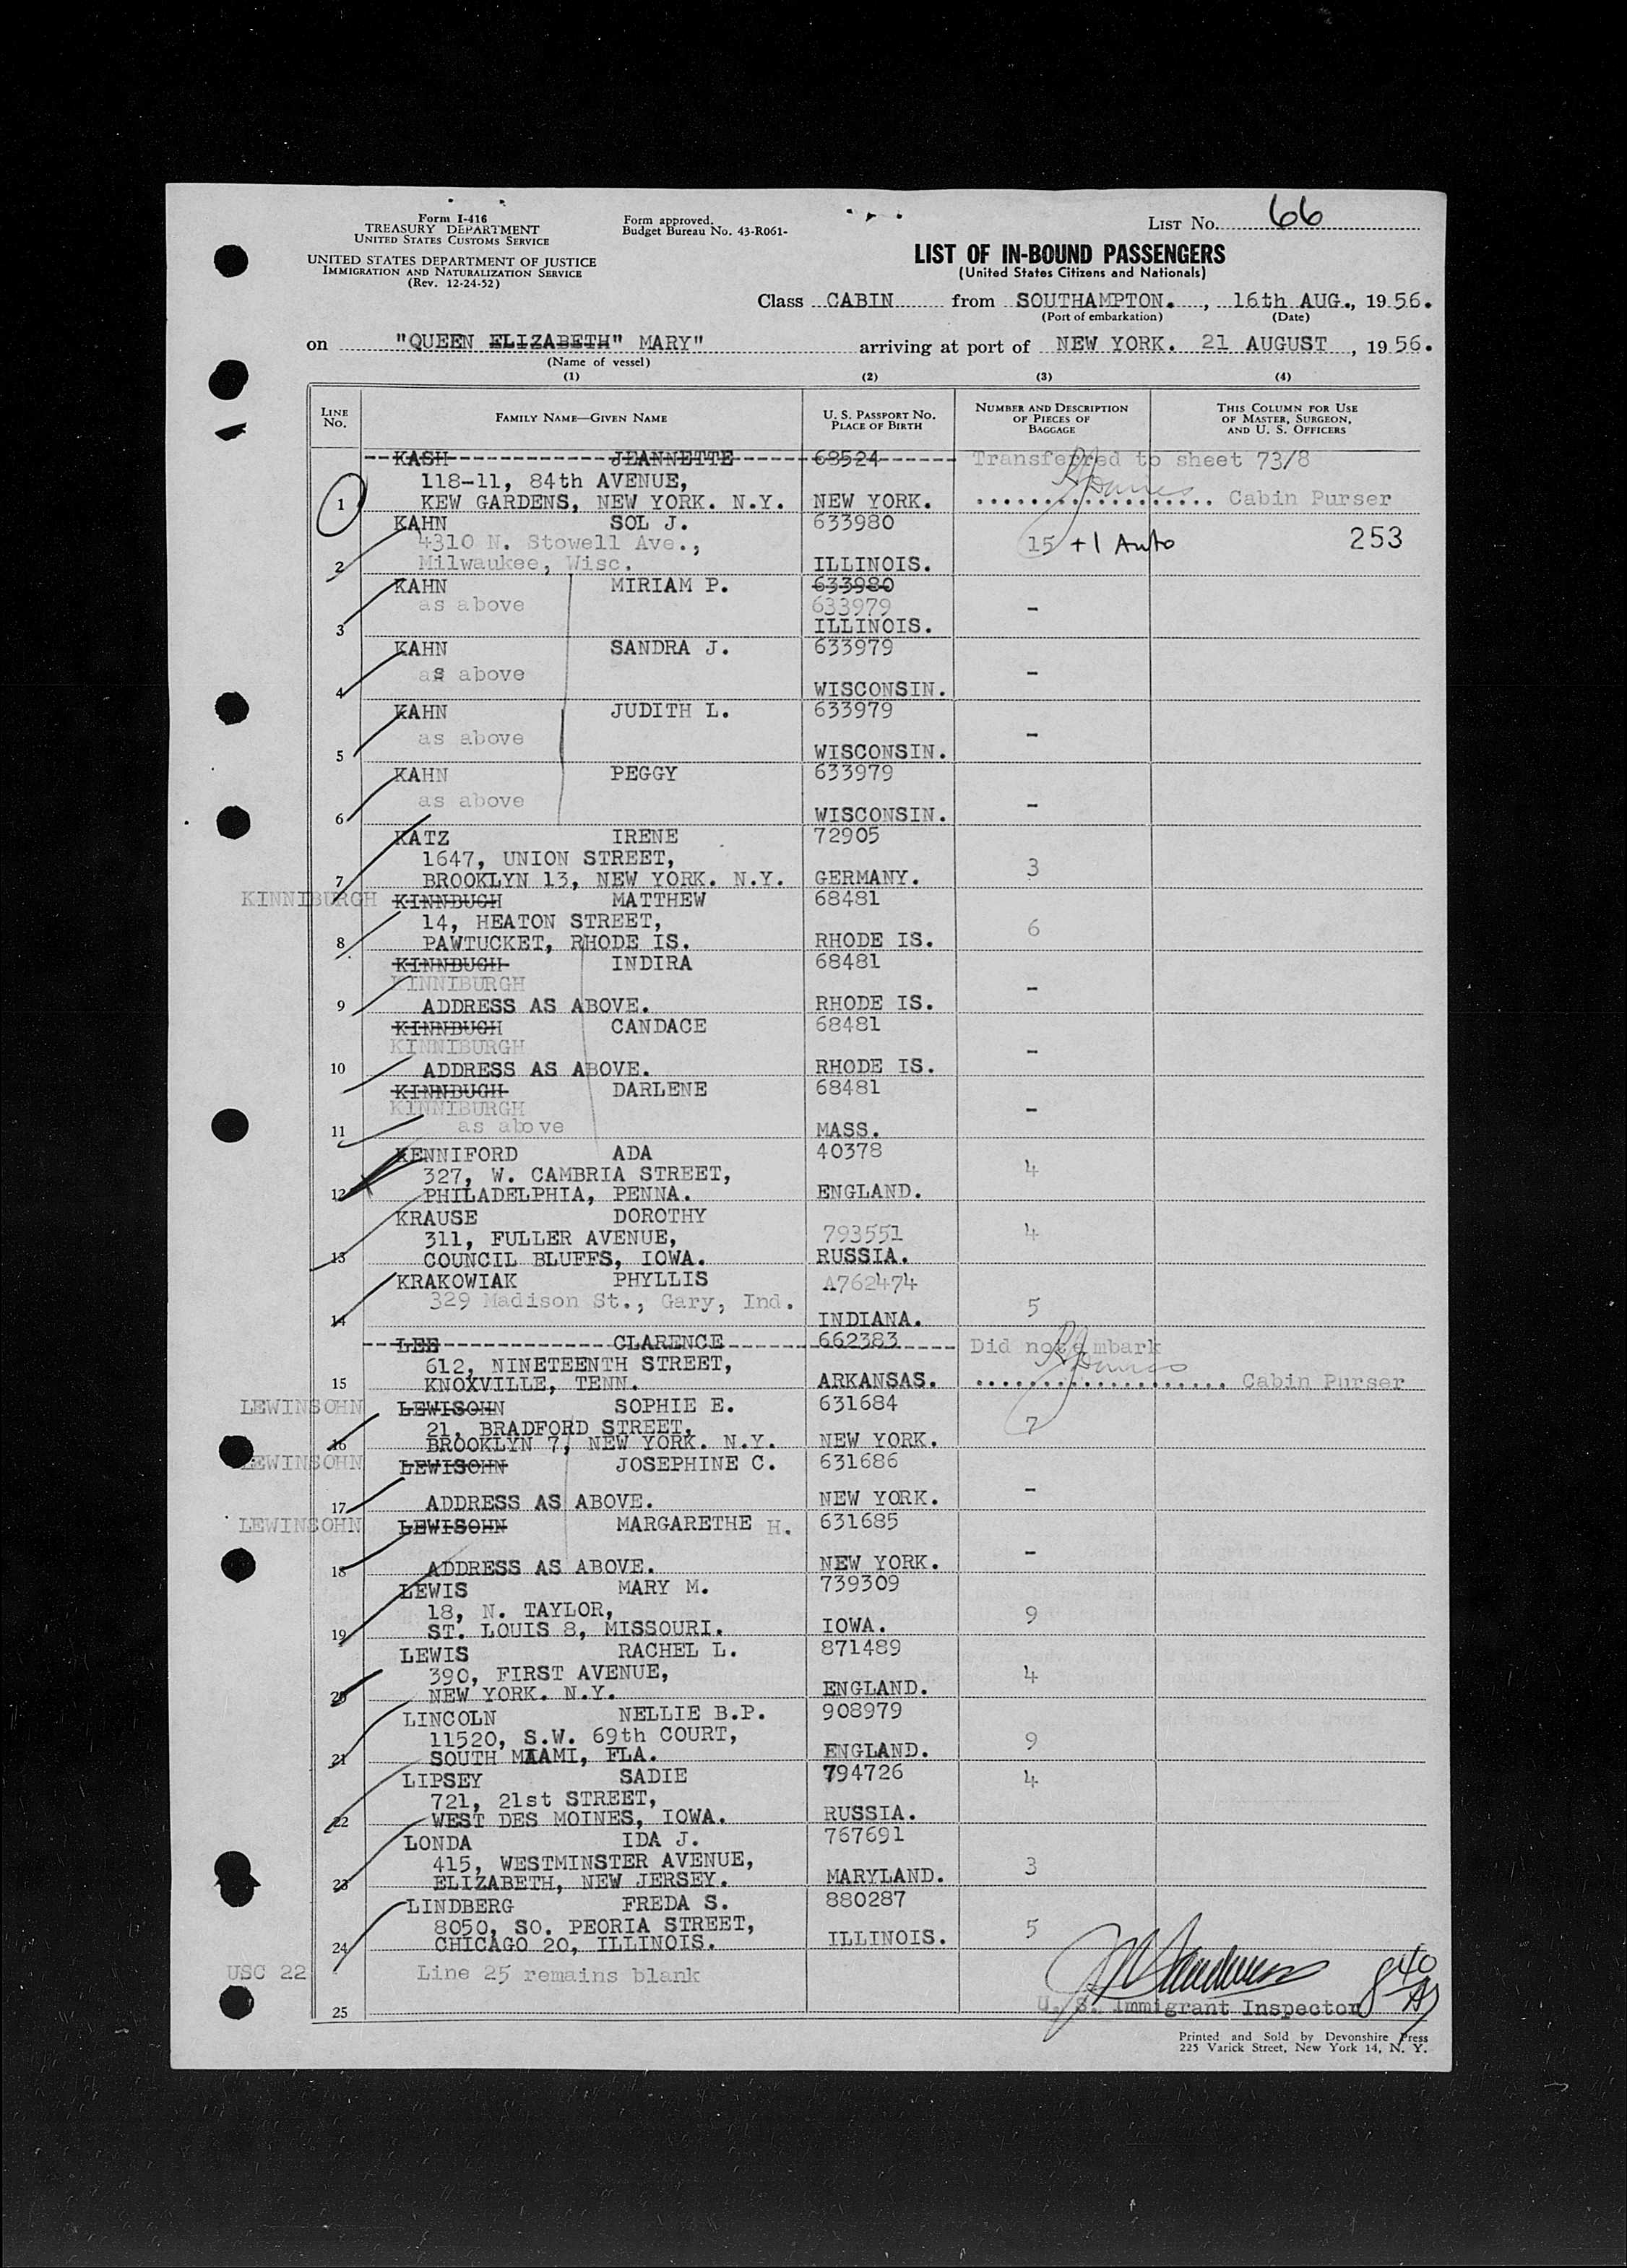 Form I-416
TREASURY DEPARTMENT
UNITED STATES CUSTOMS SERVICE
UNITED STATES DEPARTMENT OF JUSTICE
IMMIGRATION AND NATURALIZATION SERVICE
(Rev. 12-24-52)
Form approved.
Budget Bureau No. 43-R061-
LIST No. 66
LIST OF IN-BOUND PASSENGERS
(United States Citizens and Nationals)
Class CABIN from SOUTHAMPTON. , 16th AUG., 1956.
(Port of embarkation) (Date)
on "QUEEN ELIZABETH" MARY" arriving at port of NEW YORK. 21 AUGUST , 1956.
(Name of vessel)
(1) (2) (3) (4)
LINE No. FAMILY NAME—GIVEN NAME U. S. PASSPORT No. PLACE OF BIRTH NUMBER AND DESCRIPTION OF PIECES OF BAGGAGE THIS COLUMN FOR USE OF MASTER, SURGEON, AND U. S. OFFICERS
KASH JEANNETTE 68524 Transferred to sheet 73/8
118-11, 84th AVENUE,
1 KEW GARDENS, NEW YORK. N.Y. NEW YORK. Cabin Purser
KAHN SOL J. 633980
4310 N. Stowell Ave., 15 +1 Auto 253
2 Milwaukee, Wisc. ILLINOIS.
KAHN MIRIAM P. 633980
as above 633979 -
3 ILLINOIS.
KAHN SANDRA J. 633979
as above -
4 WISCONSIN.
KAHN JUDITH L. 633979
as above -
5 WISCONSIN.
KAHN PEGGY 633979
as above -
6 WISCONSIN.
KATZ IRENE 72905
1647, UNION STREET, 3
7 BROOKLYN 13, NEW YORK. N.Y. GERMANY.
KINNIBURGH KINNBUGH MATTHEW 68481
14, HEATON STREET, 6
8 PAWTUCKET, RHODE IS. RHODE IS.
KINNBUGH INDIRA 68481
KINNIBURGH -
9 ADDRESS AS ABOVE. RHODE IS.
KINNBUGH CANDACE 68481
KINNIBURGH -
10 ADDRESS AS ABOVE. RHODE IS.
KINNBUGH DARLENE 68481
KINNIBURGH -
11 as above MASS.
KENNIFORD ADA 40378
327, W. CAMBRIA STREET, 4
12 PHILADELPHIA, PENNA. ENGLAND.
KRAUSE DOROTHY
311, FULLER AVENUE, 793551 4
13 COUNCIL BLUFFS, IOWA. RUSSIA.
KRAKOWIAK PHYLLIS A762474
329 Madison St., Gary, Ind. 5
14 INDIANA.
LEE CLARENCE 662383 Did not embark
612, NINETEENTH STREET,
15 KNOXVILLE, TENN. ARKANSAS. Cabin Purser
LEWINSOHN LEWISOHN SOPHIE E. 631684
21, BRADFORD STREET, 7
16 BROOKLYN 7, NEW YORK. N.Y. NEW YORK.
LEWINSOHN LEWISOHN JOSEPHINE C. 631686
-
17 ADDRESS AS ABOVE. NEW YORK.
LEWINSOHN LEWISOHN MARGARETHE H. 631685
-
18 ADDRESS AS ABOVE. NEW YORK.
LEWIS MARY M. 739309
18, N. TAYLOR, 9
19 ST. LOUIS 8, MISSOURI. IOWA.
LEWIS RACHEL L. 871489
390, FIRST AVENUE, 4
20 NEW YORK. N.Y. ENGLAND.
LINCOLN NELLIE B.P. 908979
11520, S.W. 69th COURT, 9
21 SOUTH MIAMI, FLA. ENGLAND.
LIPSEY SADIE 794726 4
721, 21st STREET,
22 WEST DES MOINES, IOWA. RUSSIA.
LONDA IDA J. 767691
415, WESTMINSTER AVENUE, 3
23 ELIZABETH, NEW JERSEY. MARYLAND.
LINDBERG FREDA S. 880287
8050, SO. PEORIA STREET, 5
24 CHICAGO 20, ILLINOIS. ILLINOIS.
USC 22 Line 25 remains blank
25 U. S. Immigrant Inspector
Printed and Sold by Devonshire Press
225 Varick Street, New York 14, N. Y.